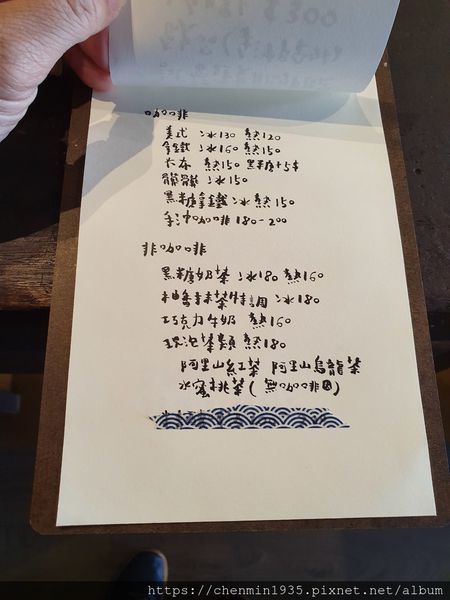 咖啡
美式 冰130 熱120
拿鐵 冰160 熱150
卡本 熱150 黑糖+5$
髒髒 冰150
黑糖拿鐵 冰 熱150
手沖咖啡 180-200
非咖啡
黑糖奶茶 冰180 熱160
柚香抹茶特調 冰180
巧克力牛奶 熱160
現泡茶類 熱180
阿里山紅茶 阿里山烏龍茶
水蜜桃茶(無咖啡因)
https://chenmin1935.pixnet.net/album